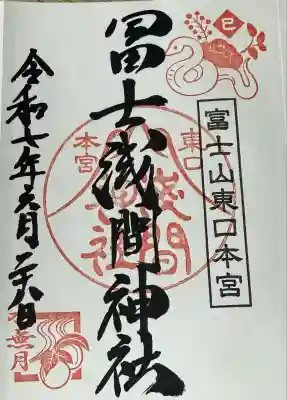 巳
富士山東口本宮
冨士浅間神社
東口
本宮
令和七年六月二十八日
無月